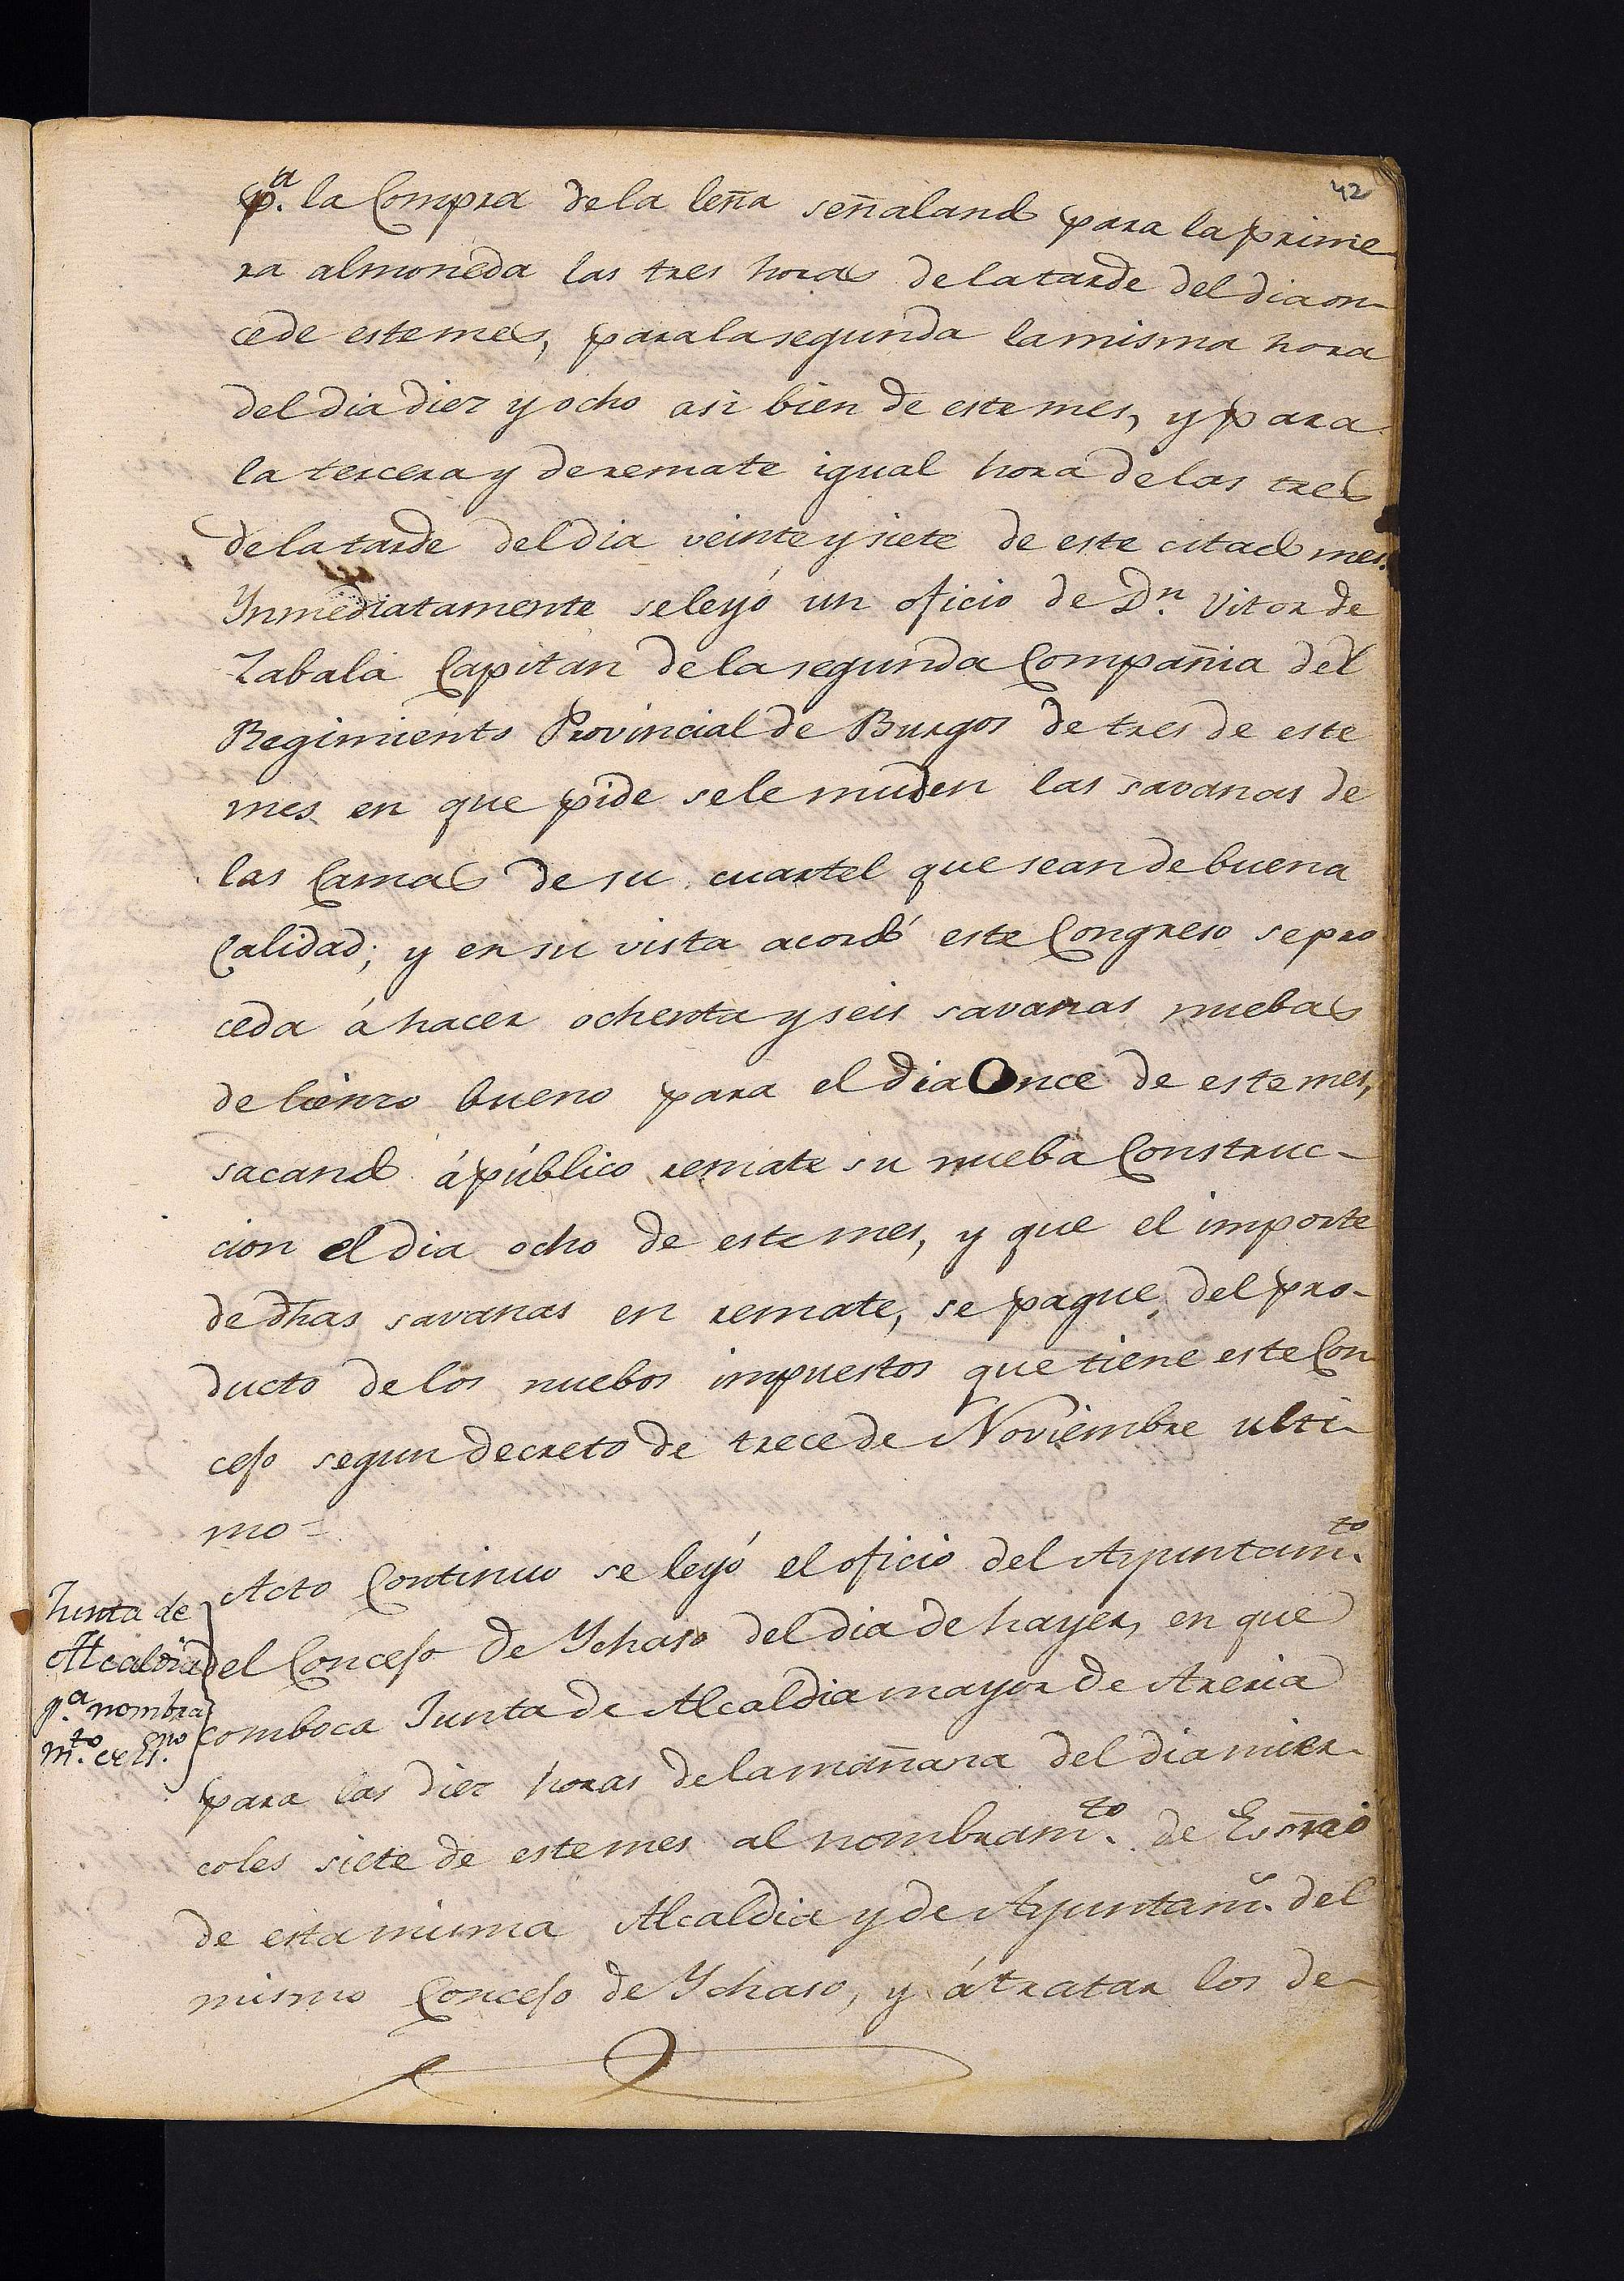 42
p.ª la Compra de la leña señalando para la prime
ra almoneda las tres horas de la tarde del dia on-
ce de este mes, para la segunda la misma hora
del dia diez y ocho asi bien de este mes, y para
la tercera y de remate igual hora de las tres
de la tarde del dia veinte y siete de este citado mes.
Ynmediatamente se leyó un oficio de D.ⁿ Vitor de
Zabala Capitan de la segunda Compañia del
Regimiento Provincial de Burgos de tres de este
mes en que pide se le muden las savanas de
las Camas de su cuartel que sean de buena
Calidad; y en su vista acordó este Congreso se pro
ceda á hacer ochenta y seis savanas nuebas
de lienzo bueno para el dia Once de este mes,
sacando á público remate su nueba Construc-
cion el dia ocho de este mes, y que el importe
de dhas savanas en remate, se pague del pro-
ducto de los nuebos impuestos que tiene este Con
cejo segun decreto de trece de Noviembre ulti-
mo=
Junta de
Alcaldia
p.ª nombra
m.to de Es.no
Acto Continuo se leyó el oficio del Ayuntam.to
del Concejo de Ychaso del dia de hayer, en que
comboca Junta de Alcaldia mayor de Areria
para las diez horas de la mañana del dia mier-
coles siete de este mes al nombram.to de Esnrio
de esta misma Alcaldia y de Ayuntam. del
mismo Concejo de Ychaso, y á tratar los de-